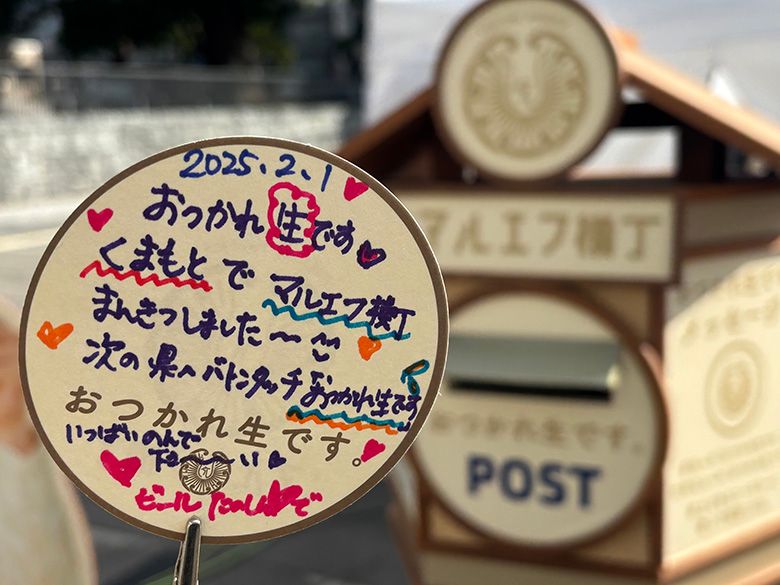 2025.2.1
おつかれ生です
くまもとで マルエフ横丁
まんきつしました〜
次の県へバトンタッチ おつかれ生です
おつかれ生です。
いっぱいのんで
下さ〜い
ビール
で
マルエフ横丁
おつかれ生です。
POST